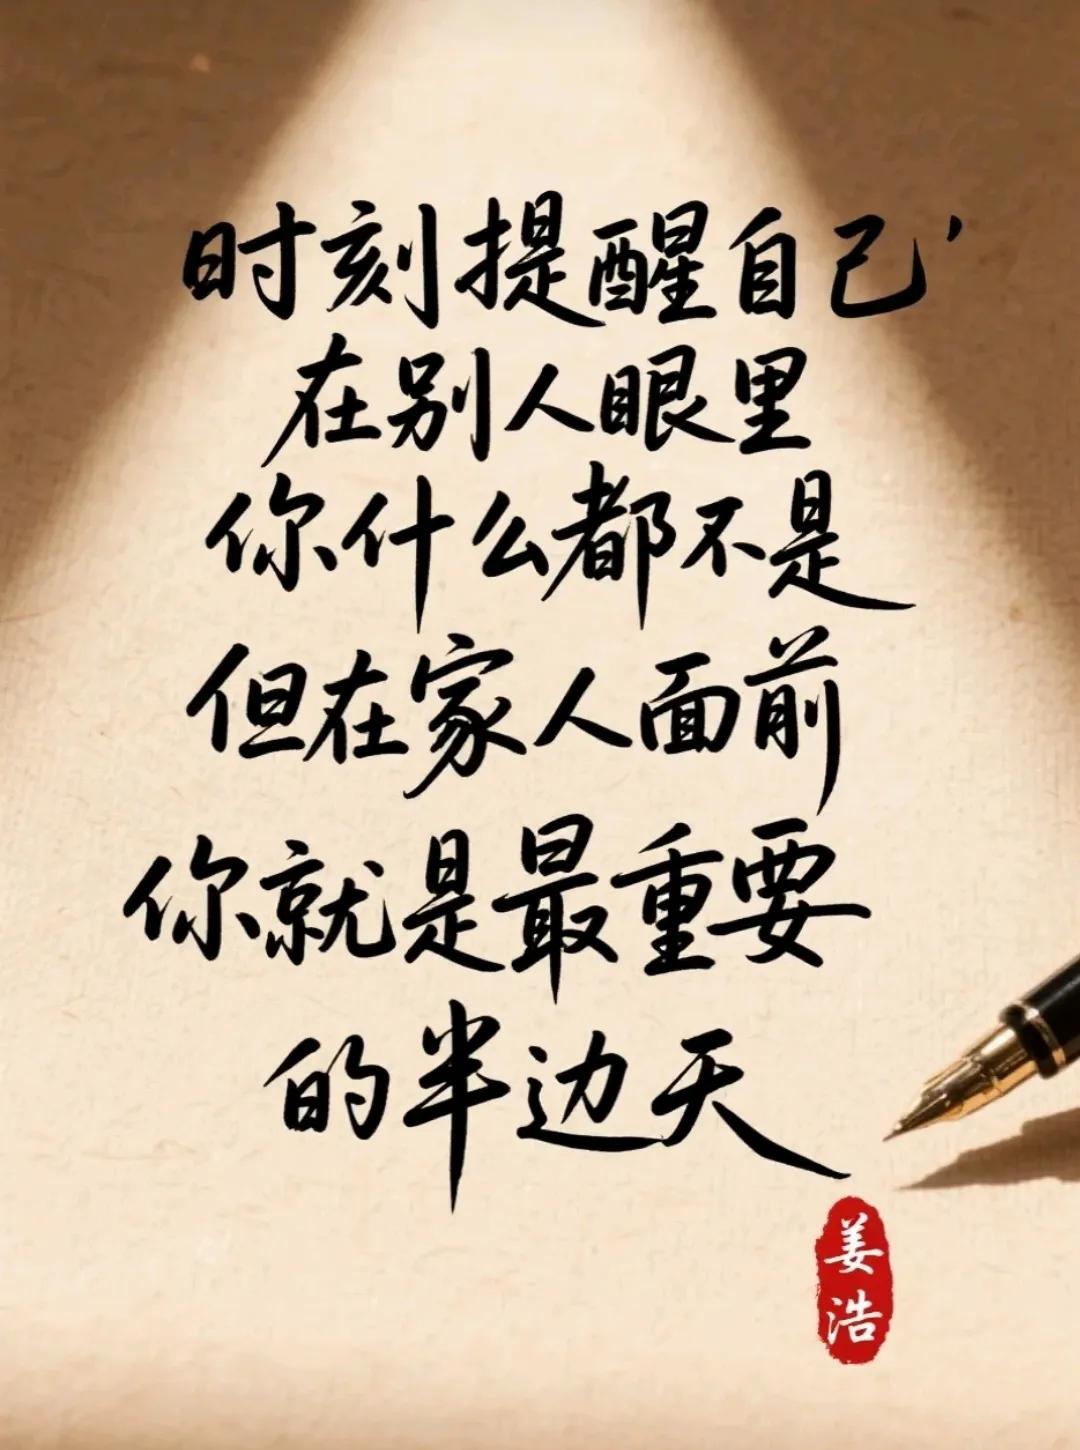 时刻提醒自己，
在别人眼里
你什么都不是
但在家人面前
你就是最重要
的半边天
姜浩